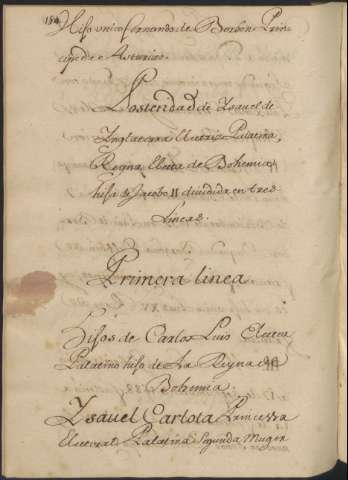 154
Hijo unico Fernando de Borbon Prin-
cipe de Asturias.
Posteridad de Ysauel de
Inglaterra Electriz Palatina,
Reyna Electa de Bohemia,
hija de Jacobo II diuidida en tres
Lineas.
Primera linea
Hijos de Carlos Luis Elector
Palatino hijo de la Reyna de
Bohemia.
Ysauel Carlota Princessa
Electoral Palatina Segunda Muger